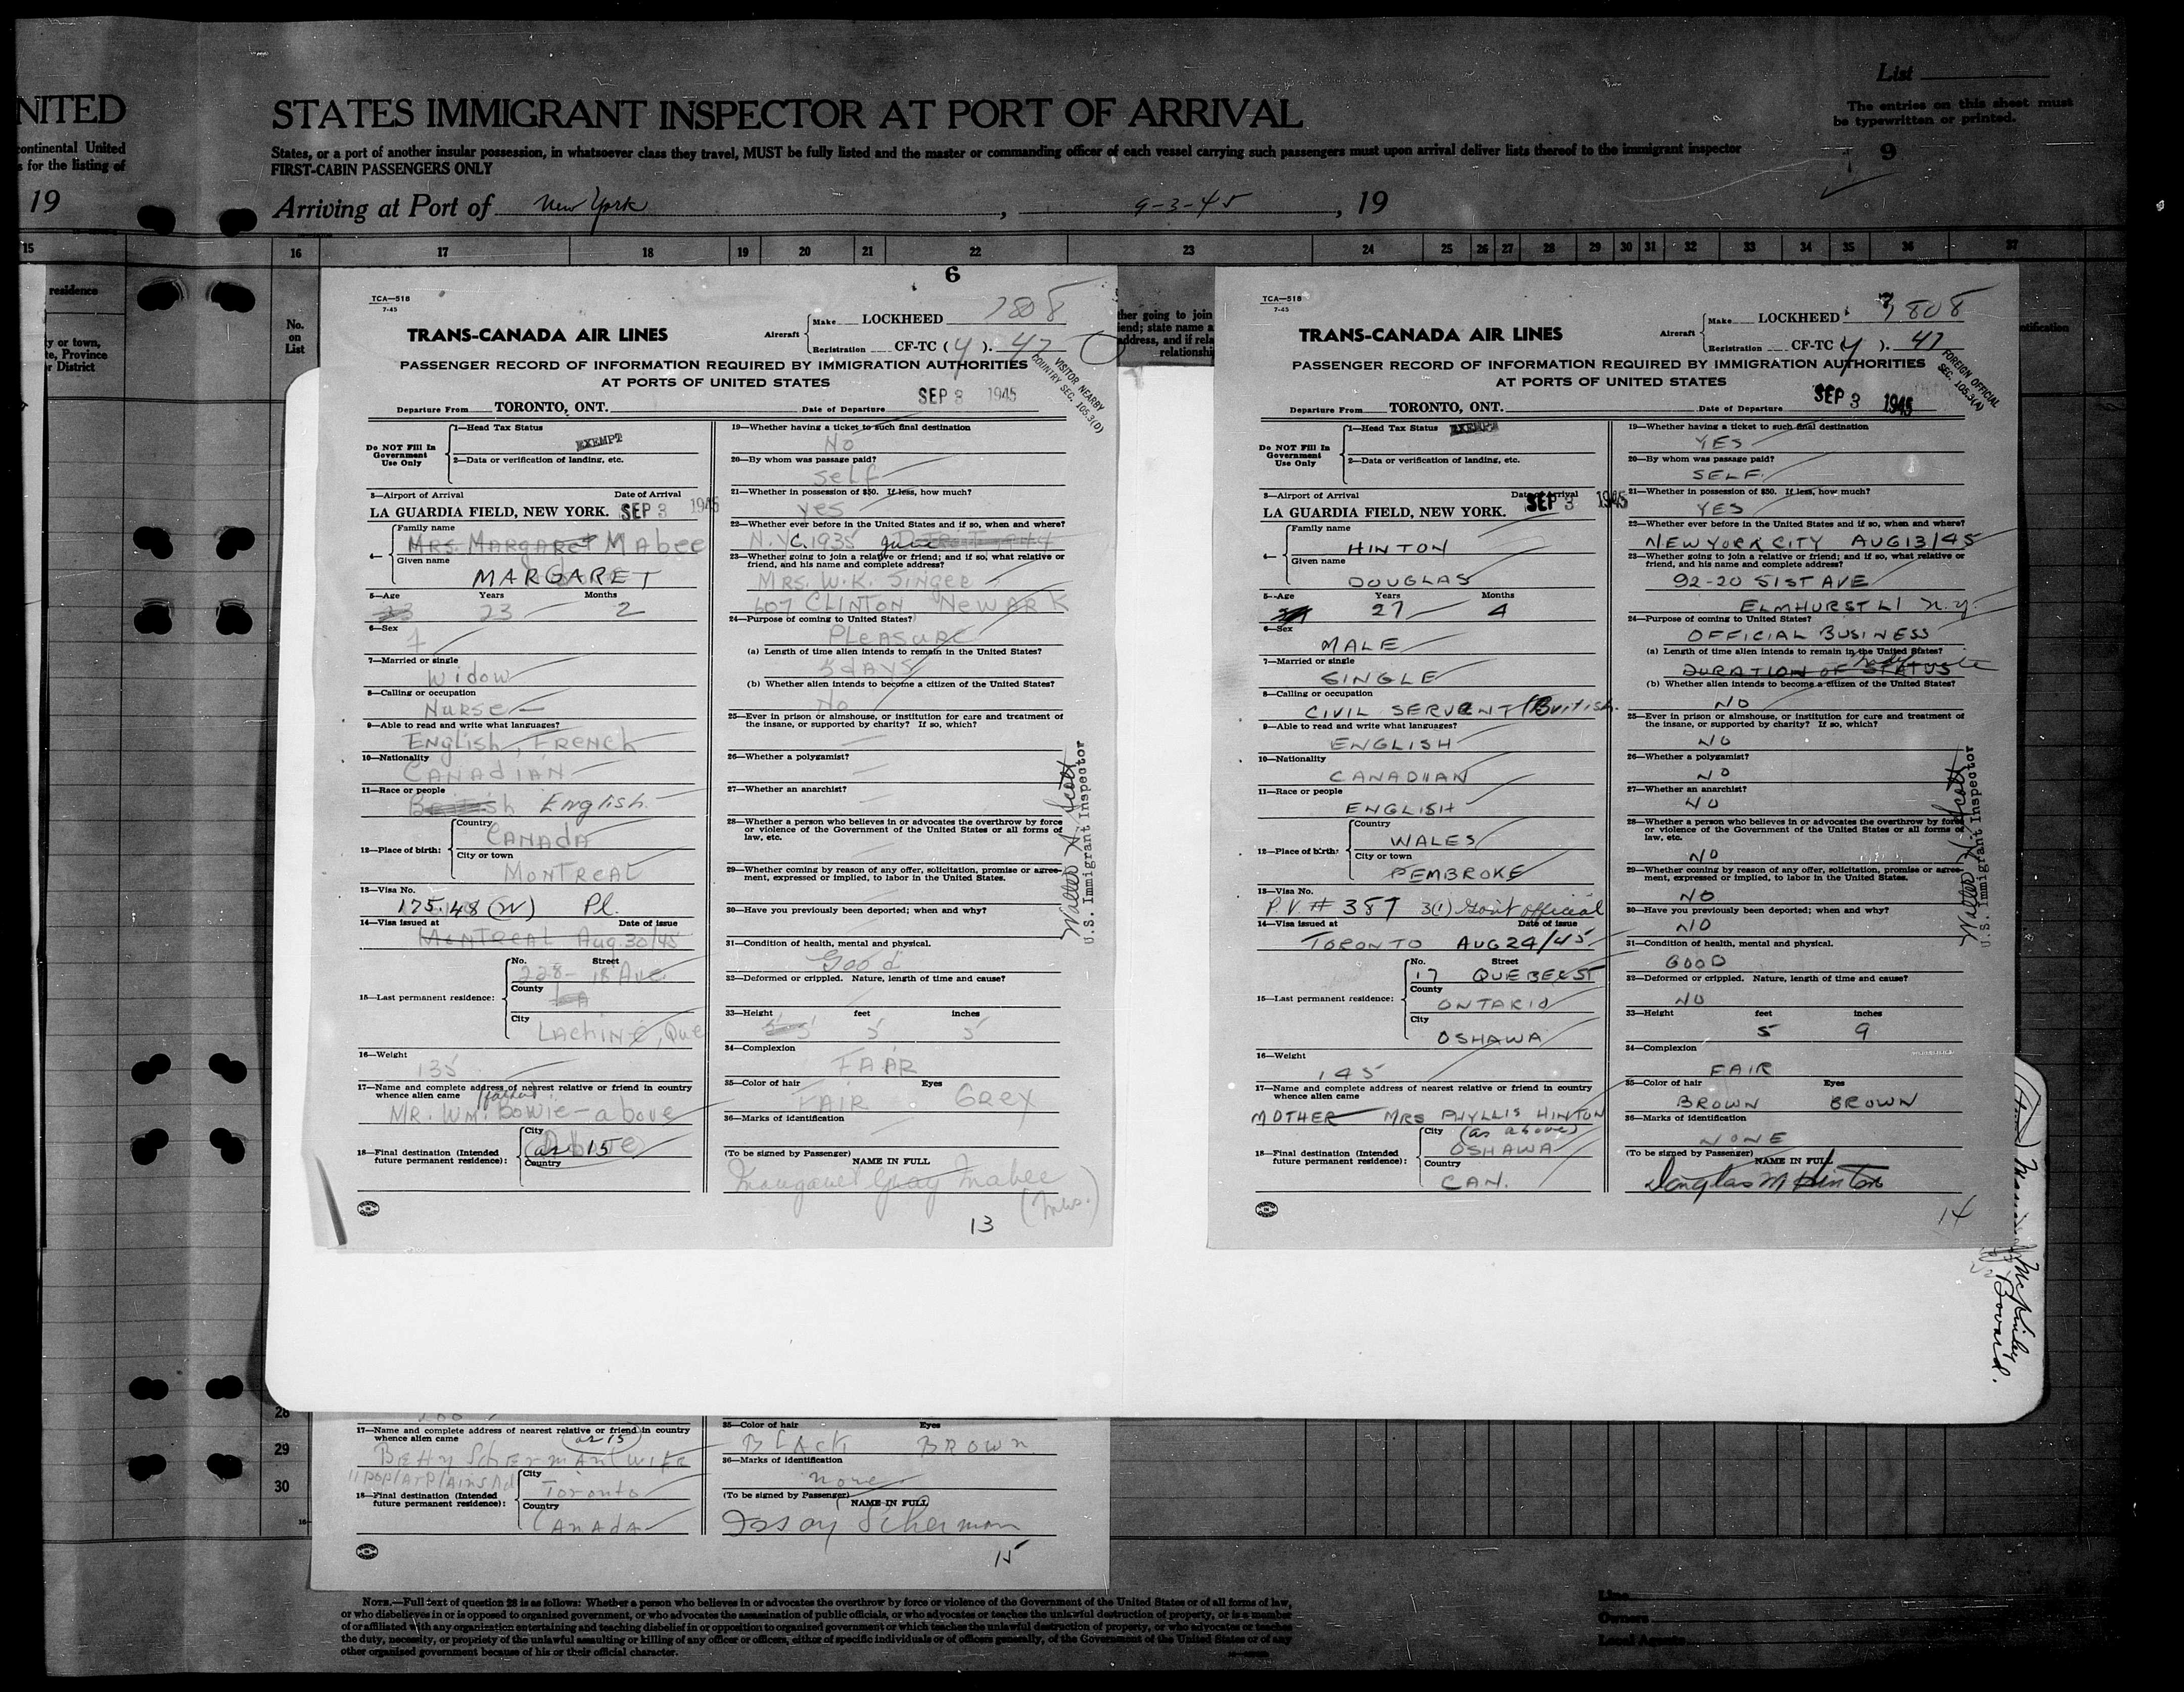 List
NITED STATES IMMIGRANT INSPECTOR AT PORT OF ARRIVAL
The entries on this sheet must
be typewritten or printed.
continental United States, or a port of another insular possession, in whatsoever class they travel, MUST be fully listed and the master or commanding officer of each vessel carrying such passengers must upon arrival deliver lists thereof to the immigrant inspector
s for the listing of FIRST-CABIN PASSENGERS ONLY
9
19 Arriving at Port of New York, 9-3-45, 19
15 16 17 18 19 20 21 22 23 24 25 26 27 28 29 30 31 32 33 34 35 36 37
residence
y or town,
te, Province
r District
No.
on
List
6
TCA—518
7-45
TRANS-CANADA AIR LINES
Aircraft
Make LOCKHEED 7808
Registration CF-TC (4). 47
PASSENGER RECORD OF INFORMATION REQUIRED BY IMMIGRATION AUTHORITIES
AT PORTS OF UNITED STATES
VISITOR NEARBY
COUNTRY SEC. 105.3(D)
SEP 3 1945
Departure From TORONTO, ONT. Date of Departure
Do NOT Fill In
Government
Use Only
1—Head Tax Status EXEMPT
2—Data or verification of landing, etc.
3—Airport of Arrival Date of Arrival
LA GUARDIA FIELD, NEW YORK. SEP 3 1945
4—
Family name
Mrs. Margaret Mabee
Given name
MARGARET
5—Age Years Months
23 23 2
6—Sex
f
7—Married or single
Widow
8—Calling or occupation
Nurse
9—Able to read and write what languages?
English, French
10—Nationality
CANADIAN
11—Race or people
British English
12—Place of birth:
Country
CANADA
City or town
MONTREAL
13—Visa No.
175.48 (W) Pl.
14—Visa issued at Date of issue
MONTREAL Aug. 30/45
15—Last permanent residence:
No. Street
228- 18 Ave.
County
City
Lachine, Que
16—Weight
135
17—Name and complete address of nearest relative or friend in country
whence alien came (father)
MR. Wm. Bowie - above
18—Final destination (Intended
future permanent residence):
City
as 15
Country
19—Whether having a ticket to such final destination
No
20—By whom was passage paid?
self
21—Whether in possession of $50. If less, how much?
yes
22—Whether ever before in the United States and if so, when and where?
N.Y.C. 1935 June
23—Whether going to join a relative or friend; and if so, what relative or
friend, and his name and complete address?
MRS. W.K. Singer
607 CLINTON, NEWARK
24—Purpose of coming to United States?
PLEASURE
(a) Length of time alien intends to remain in the United States?
5 days
(b) Whether alien intends to become a citizen of the United States?
No
25—Ever in prison or almshouse, or institution for care and treatment of
the insane, or supported by charity? If so, which?
26—Whether a polygamist?
27—Whether an anarchist?
28—Whether a person who believes in or advocates the overthrow by force
or violence of the Government of the United States or all forms of
law, etc.
29—Whether coming by reason of any offer, solicitation, promise or agree-
ment, expressed or implied, to labor in the United States.
30—Have you previously been deported; when and why?
31—Condition of health, mental and physical.
Good
32—Deformed or crippled. Nature, length of time and cause?
33—Height feet inches
5 5
34—Complexion
FAIR
35—Color of hair Eyes
FAIR Grey
36—Marks of identification
(To be signed by Passenger)
NAME IN FULL
Margaret Gray Mabee
(Mrs.)
13
Walter H. Scott
U.S. Immigrant Inspector
her going to join
end; state name a
address, and if rela
relationshi
TCA—518
7-45
TRANS-CANADA AIR LINES
Aircraft
Make LOCKHEED 7808
Registration CF-TC (4). 47
PASSENGER RECORD OF INFORMATION REQUIRED BY IMMIGRATION AUTHORITIES
AT PORTS OF UNITED STATES
FOREIGN OFFICIAL
SEC. 105.3(A)
SEP 3 1945
Departure From TORONTO, ONT. Date of Departure
Do NOT Fill In
Government
Use Only
1—Head Tax Status EXEMPT
2—Data or verification of landing, etc.
3—Airport of Arrival Date of Arrival
LA GUARDIA FIELD, NEW YORK. SEP 3 1945
4—
Family name
HINTON
Given name
DOUGLAS
5—Age Years Months
27 4
6—Sex
MALE
7—Married or single
SINGLE
8—Calling or occupation
CIVIL SERVENT (British.
9—Able to read and write what languages?
ENGLISH
10—Nationality
CANADIAN
11—Race or people
ENGLISH
12—Place of birth:
Country
WALES
City or town
PEMBROKE
13—Visa No.
P.V. # 387 3(1) Govt official
14—Visa issued at Date of issue
TORONTO AUG 24/45
15—Last permanent residence:
No. Street
17 QUEBEC ST
County
ONTARIO
City
OSHAWA
16—Weight
145
17—Name and complete address of nearest relative or friend in country
whence alien came
MOTHER MRS PHYLLIS HINTON
(as above)
18—Final destination (Intended
future permanent residence):
City
OSHAWA
Country
CAN.
19—Whether having a ticket to such final destination
YES
20—By whom was passage paid?
SELF.
21—Whether in possession of $50. If less, how much?
YES
22—Whether ever before in the United States and if so, when and where?
NEW YORK CITY AUG 13/45
23—Whether going to join a relative or friend; and if so, what relative or
friend, and his name and complete address?
92-20 51ST AVE
ELMHURST L I N.Y.
24—Purpose of coming to United States?
OFFICIAL BUSINESS
(a) Length of time alien intends to remain in the United States?
DURATION OF STATUS
(b) Whether alien intends to become a citizen of the United States?
NO
25—Ever in prison or almshouse, or institution for care and treatment of
the insane, or supported by charity? If so, which?
NO
26—Whether a polygamist?
NO
27—Whether an anarchist?
NO
28—Whether a person who believes in or advocates the overthrow by force
or violence of the Government of the United States or all forms of
law, etc.
NO
29—Whether coming by reason of any offer, solicitation, promise or agree-
ment, expressed or implied, to labor in the United States.
NO
30—Have you previously been deported; when and why?
NO
31—Condition of health, mental and physical.
GOOD
32—Deformed or crippled. Nature, length of time and cause?
NO
33—Height feet inches
5 9
34—Complexion
FAIR
35—Color of hair Eyes
BROWN BROWN
36—Marks of identification
NONE
(To be signed by Passenger)
NAME IN FULL
Douglas M Hinton
14
Walter H. Scott
U.S. Immigrant Inspector
McKinley
Bovaird.
28
29
30
17—Name and complete address of nearest relative or friend in country
whence alien came (as 15)
Betty Scherman (wife
18—Final destination (Intended
future permanent residence):
City
Toronto
Country
CANADA
35—Color of hair Eyes
BLACK BROWN
36—Marks of identification
none
(To be signed by Passenger)
NAME IN FULL
Scherman
15
NOTE.—Full text of question 28 is as follows: Whether a person who believes in or advocates the overthrow by force or violence of the Government of the United States or of all forms of law,
or who disbelieves in or is opposed to organized government, or who advocates the assassination of public officials, or who advocates or teaches the unlawful destruction of property, or is a member
of or affiliated with any organization entertaining and teaching disbelief in or opposition to organized government or which teaches the unlawful destruction of property, or who advocates or teaches
the duty, necessity, or propriety of the unlawful assaulting or killing of any officer or officers, either of specific individuals or of officers generally, of the Government of the United States or of any
other organized government because of his or their official character.
Line
Owners
Local Agents